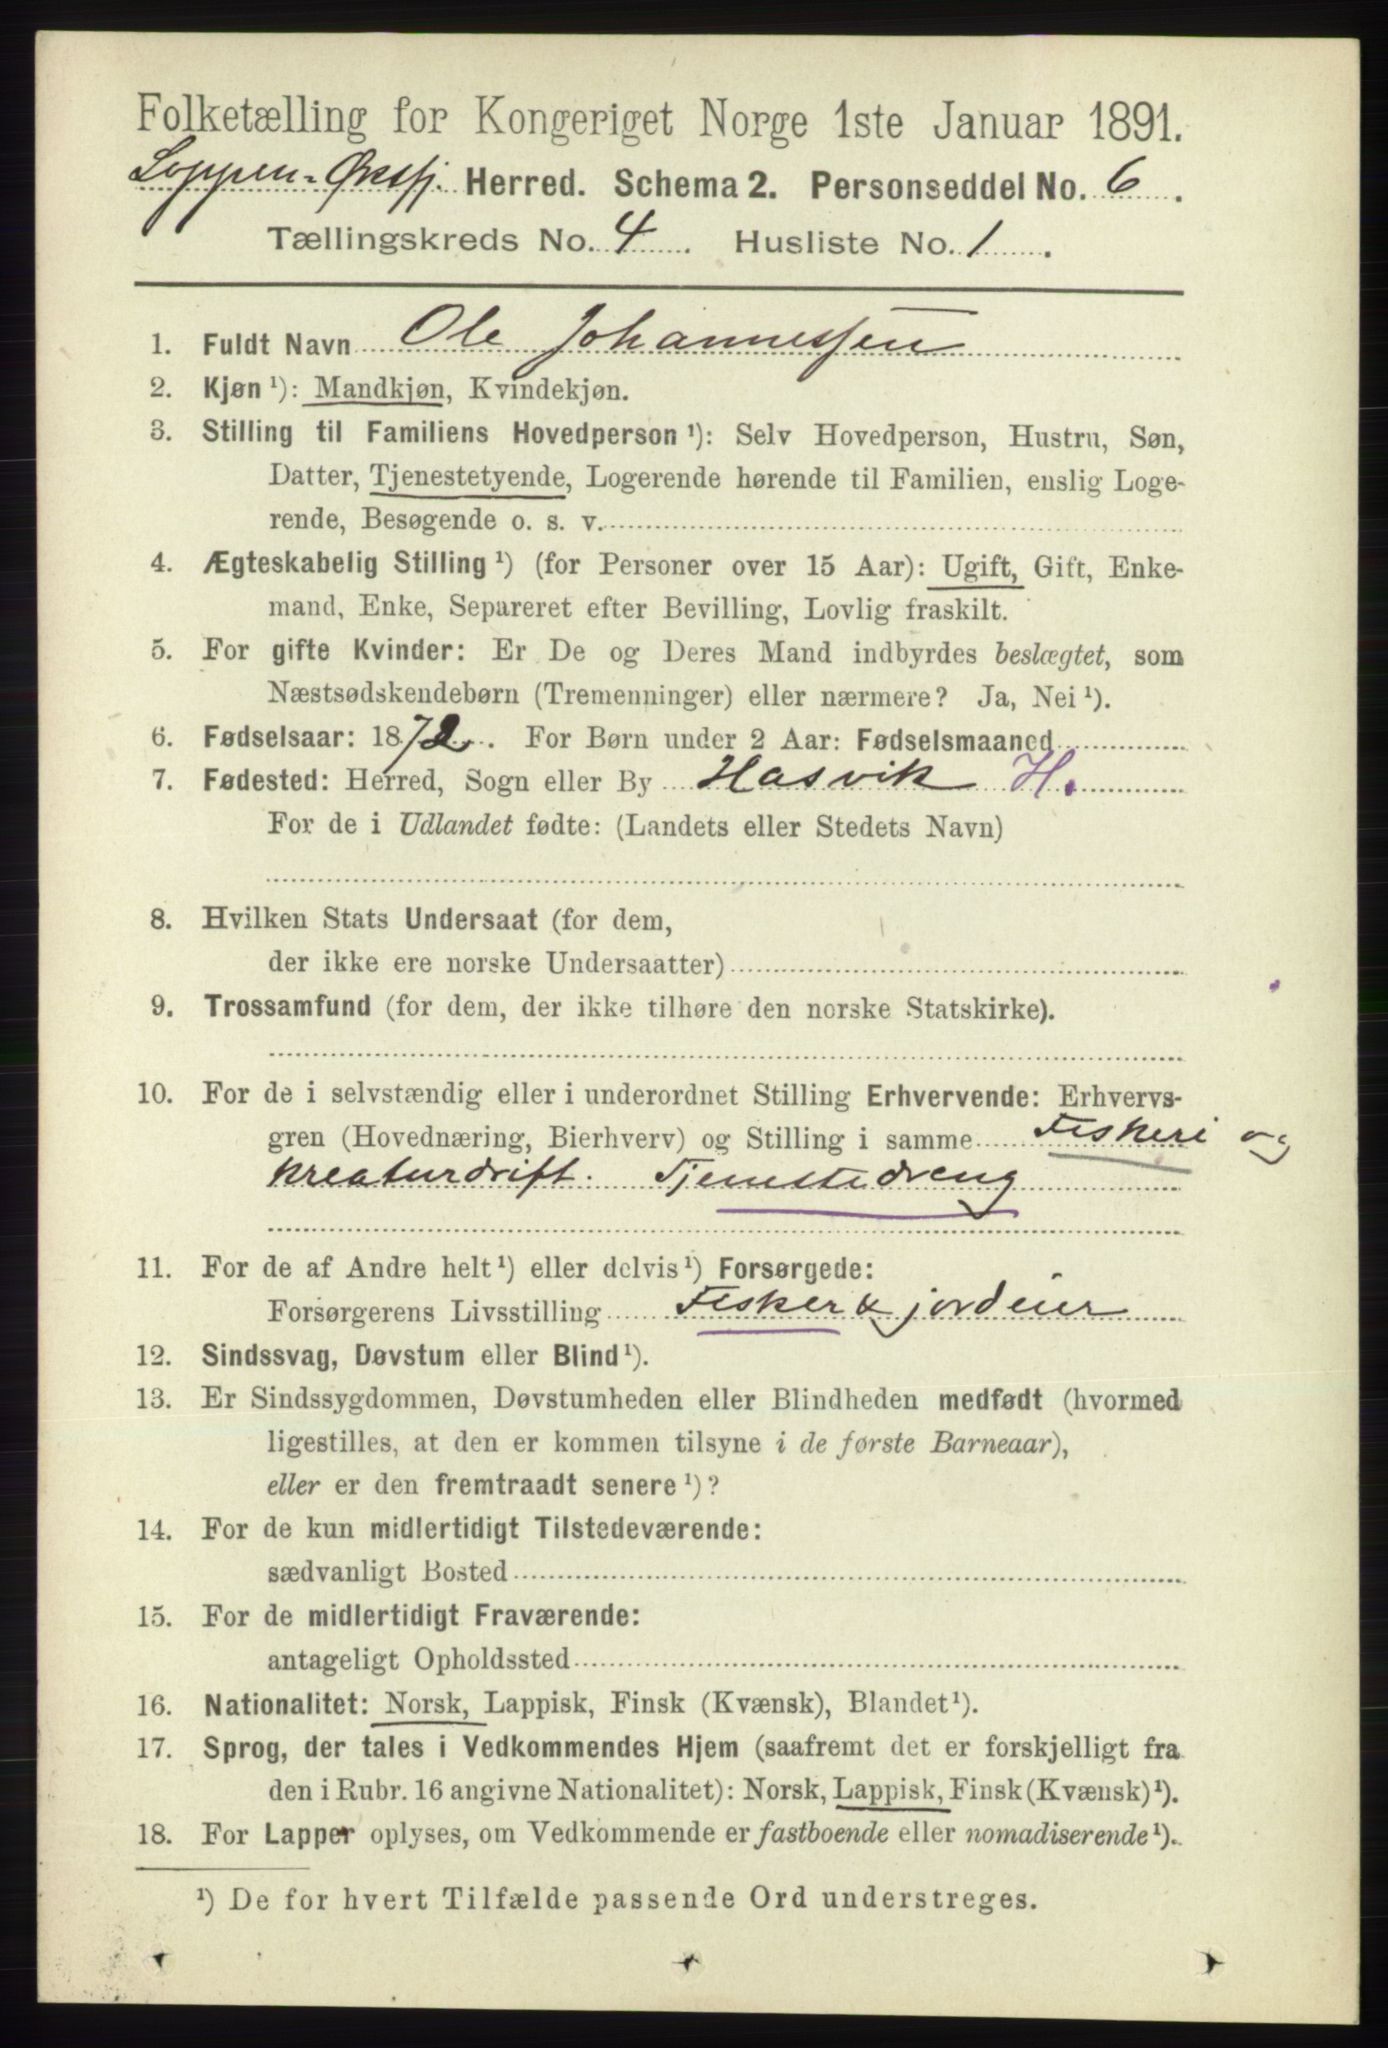 Folketælling for Kongeriget Norge 1ste Januar 1891.
Loppen-Øxfj. Herred. Schema 2. Personseddel No. 6.
Tællingskreds No. 4. Husliste No. 1.
1. Fuldt Navn Ole Johannessen
2. Kjøn ¹): Mandkjøn, Kvindekjøn.
3. Stilling til Familiens Hovedperson ¹): Selv Hovedperson, Hustru, Søn,
Datter, Tjenestetyende, Logerende hørende til Familien, enslig Loge-
rende, Besøgende o. s. v.
4. Ægteskabelig Stilling ¹) (for Personer over 15 Aar): Ugift, Gift, Enke-
mand, Enke, Separeret efter Bevilling, Lovlig fraskilt.
5. For gifte Kvinder: Er De og Deres Mand indbyrdes beslægtet, som
Næstsødskendebørn (Tremenninger) eller nærmere? Ja, Nei ¹).
6. Fødselsaar: 1872. For Børn under 2 Aar: Fødselsmaaned
7. Fødested: Herred, Sogn eller By Hasvik H.
For de i Udlandet fødte: (Landets eller Stedets Navn)
8. Hvilken Stats Undersaat (for dem,
der ikke ere norske Undersaatter)
9. Trossamfund (for dem, der ikke tilhøre den norske Statskirke).
10. For de i selvstændig eller i underordnet Stilling Erhvervende: Erhvervs-
gren (Hovednæring, Bierhverv) og Stilling i samme Fiskeri og
kreaturdrift. Tjenestedreng
11. For de af Andre helt ¹) eller delvis ¹) Forsørgede:
Forsørgerens Livsstilling Fisker & jordeier
12. Sindssvag, Døvstum eller Blind ¹).
13. Er Sindssygdommen, Døvstumheden eller Blindheden medfødt (hvormed
ligestilles, at den er kommen tilsyne i de første Barneaar),
eller er den fremtraadt senere ¹)?
14. For de kun midlertidigt Tilstedeværende:
sædvanligt Bosted
15. For de midlertidigt Fraværende:
antageligt Opholdssted
16. Nationalitet: Norsk, Lappisk, Finsk (Kvænsk), Blandet ¹).
17. Sprog, der tales i Vedkommendes Hjem (saafremt det er forskjelligt fra
den i Rubr. 16 angivne Nationalitet): Norsk, Lappisk, Finsk (Kvænsk) ¹).
18. For Lapper oplyses, om Vedkommende er fastboende eller nomadiserende ¹).
¹) De for hvert Tilfælde passende Ord understreges.